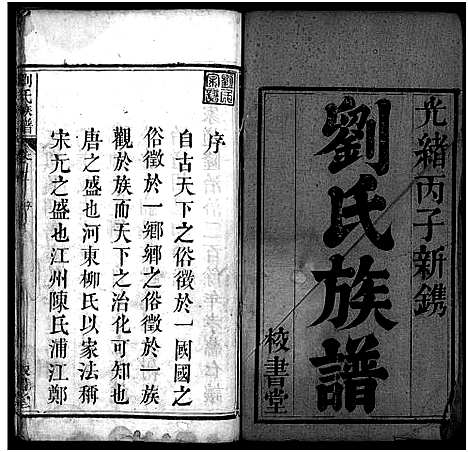 光緒丙子新鐫
劉氏族譜
校書堂
序
自古天下之俗徵於一國國之
俗徵於一鄉鄉之俗徵於一族
觀於族而天下之治化可知也
唐之盛也河東柳氏以家法稱
宋元之盛也江州陳氏浦江鄭
劉氏族譜
序